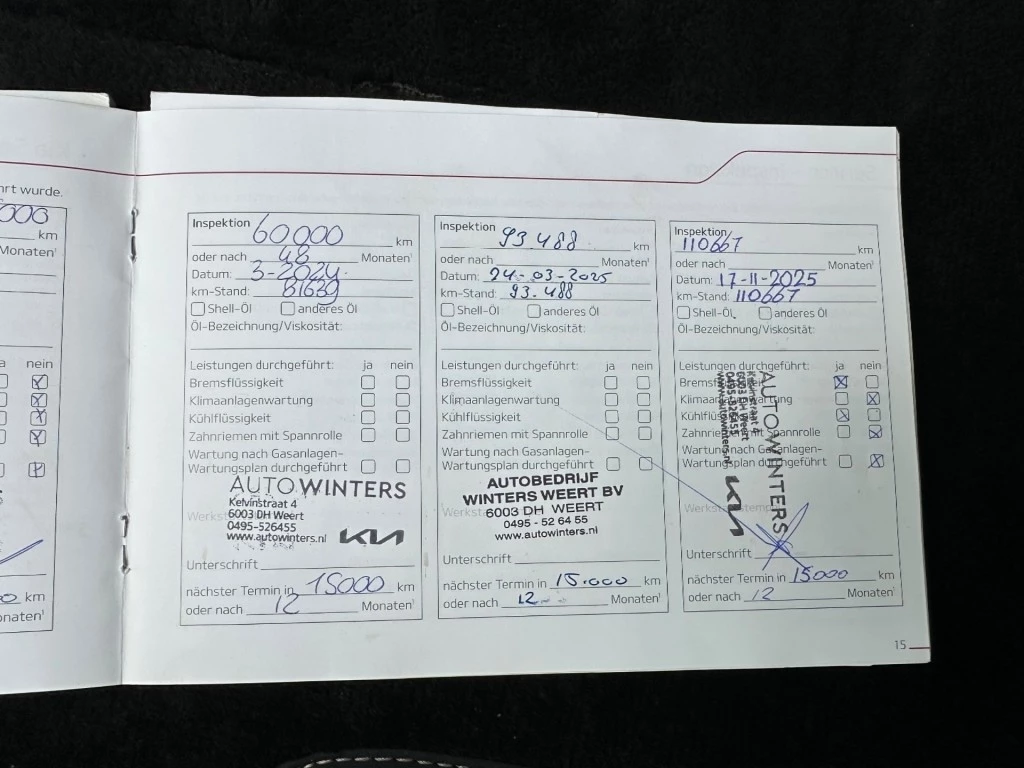 hrt wurde.
000
km
Monaten¹
a nein
0 km
onaten¹
Inspektion 60000 km
oder nach 48 Monaten¹
Datum: 3-2024
km-Stand: 81639
Shell-Öl anderes Öl
Öl-Bezeichnung/Viskosität:
Leistungen durchgeführt: ja nein
Bremsflüssigkeit
Klimaanlagenwartung
Kühlflüssigkeit
Zahnriemen mit Spannrolle
Wartung nach Gasanlagen-
Wartungsplan durchgeführt
AUTO WINTERS
Kelvinstraat 4
6003 DH Weert
0495-526455
www.autowinters.nl KIA
Unterschrift
nächster Termin in 15000 km
oder nach 12 Monaten¹
Inspektion 93.488 km
oder nach Monaten¹
Datum: 24-03-2025
km-Stand: 93.488
Shell-Öl anderes Öl
Öl-Bezeichnung/Viskosität:
Leistungen durchgeführt: ja nein
Bremsflüssigkeit
Klimaanlagenwartung
Kühlflüssigkeit
Zahnriemen mit Spannrolle
Wartung nach Gasanlagen-
Wartungsplan durchgeführt
AUTOBEDRIJF
WINTERS WEERT BV
6003 DH WEERT
0495 - 52 64 55
www.autowinters.nl
Unterschrift
nächster Termin in 15.000 km
oder nach 12 Monaten¹
Inspektion 110667 km
oder nach Monaten¹
Datum: 17-11-2025
km-Stand: 110667
Shell-Öl anderes Öl
Öl-Bezeichnung/Viskosität:
Leistungen durchgeführt: ja nein
Bremsflüssigkeit
Klimaanlagenwartung
Kühlflüssigkeit
Zahnriemen mit Spannrolle
Wartung nach Gasanlagen-
Wartungsplan durchgeführt
AUTO WINTERS
Kelvinstraat 4
6003 DH Weert
0495-526455
www.autowinters.nl
KIA
Werkstattstempel
Unterschrift
nächster Termin in 15000 km
oder nach 12 Monaten¹
15